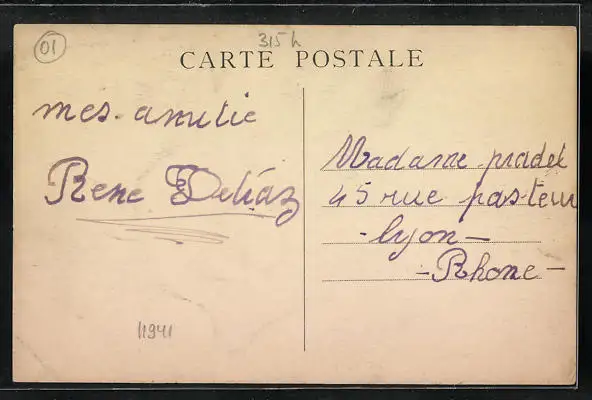 01
315 h
CARTE POSTALE
mes. amitie
Rene
Madame pradel
45 rue pasteur
- lyon -
- Rhone -
11941